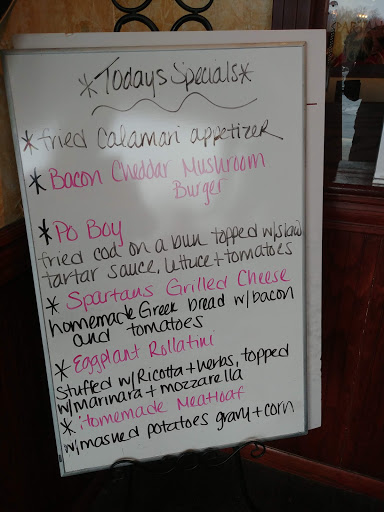 *Todays Specials*
*fried Calamari appetizer
*Bacon Cheddar Mushroom
Burger
*Po Boy
fried cod on a bun topped w/slaw
tartar sauce, lettuce + tomatoes
*Spartans Grilled Cheese
homemade Greek bread w/bacon
and tomatoes
*Eggplant Rollatini
Stuffed w/Ricotta + herbs, topped
w/marinara + mozzarella
*Homemade Meatloaf
w/mashed potatoes gravy + corn